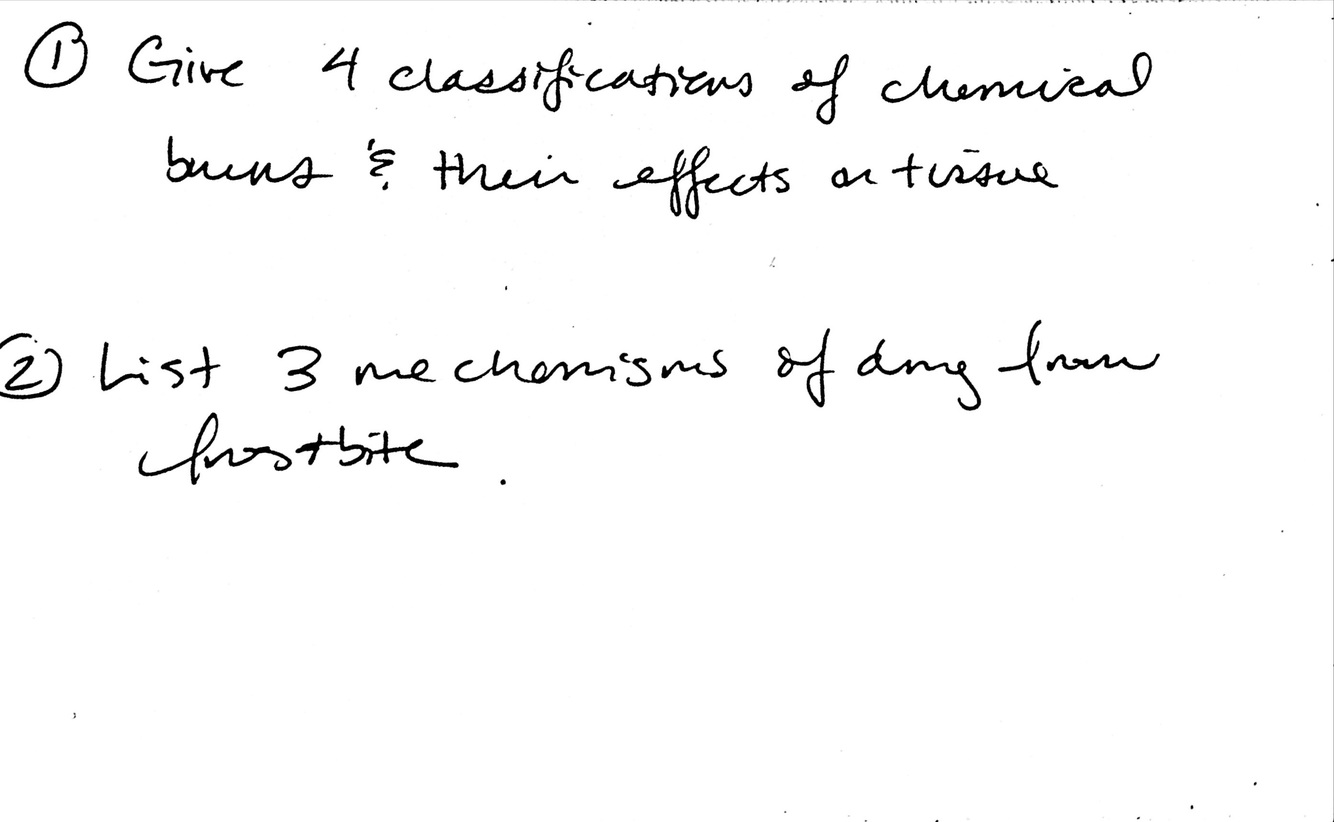 ① Give 4 classifications of chemical
burns & their effects on tissue
② List 3 mechanisms of dmg from
frostbite.